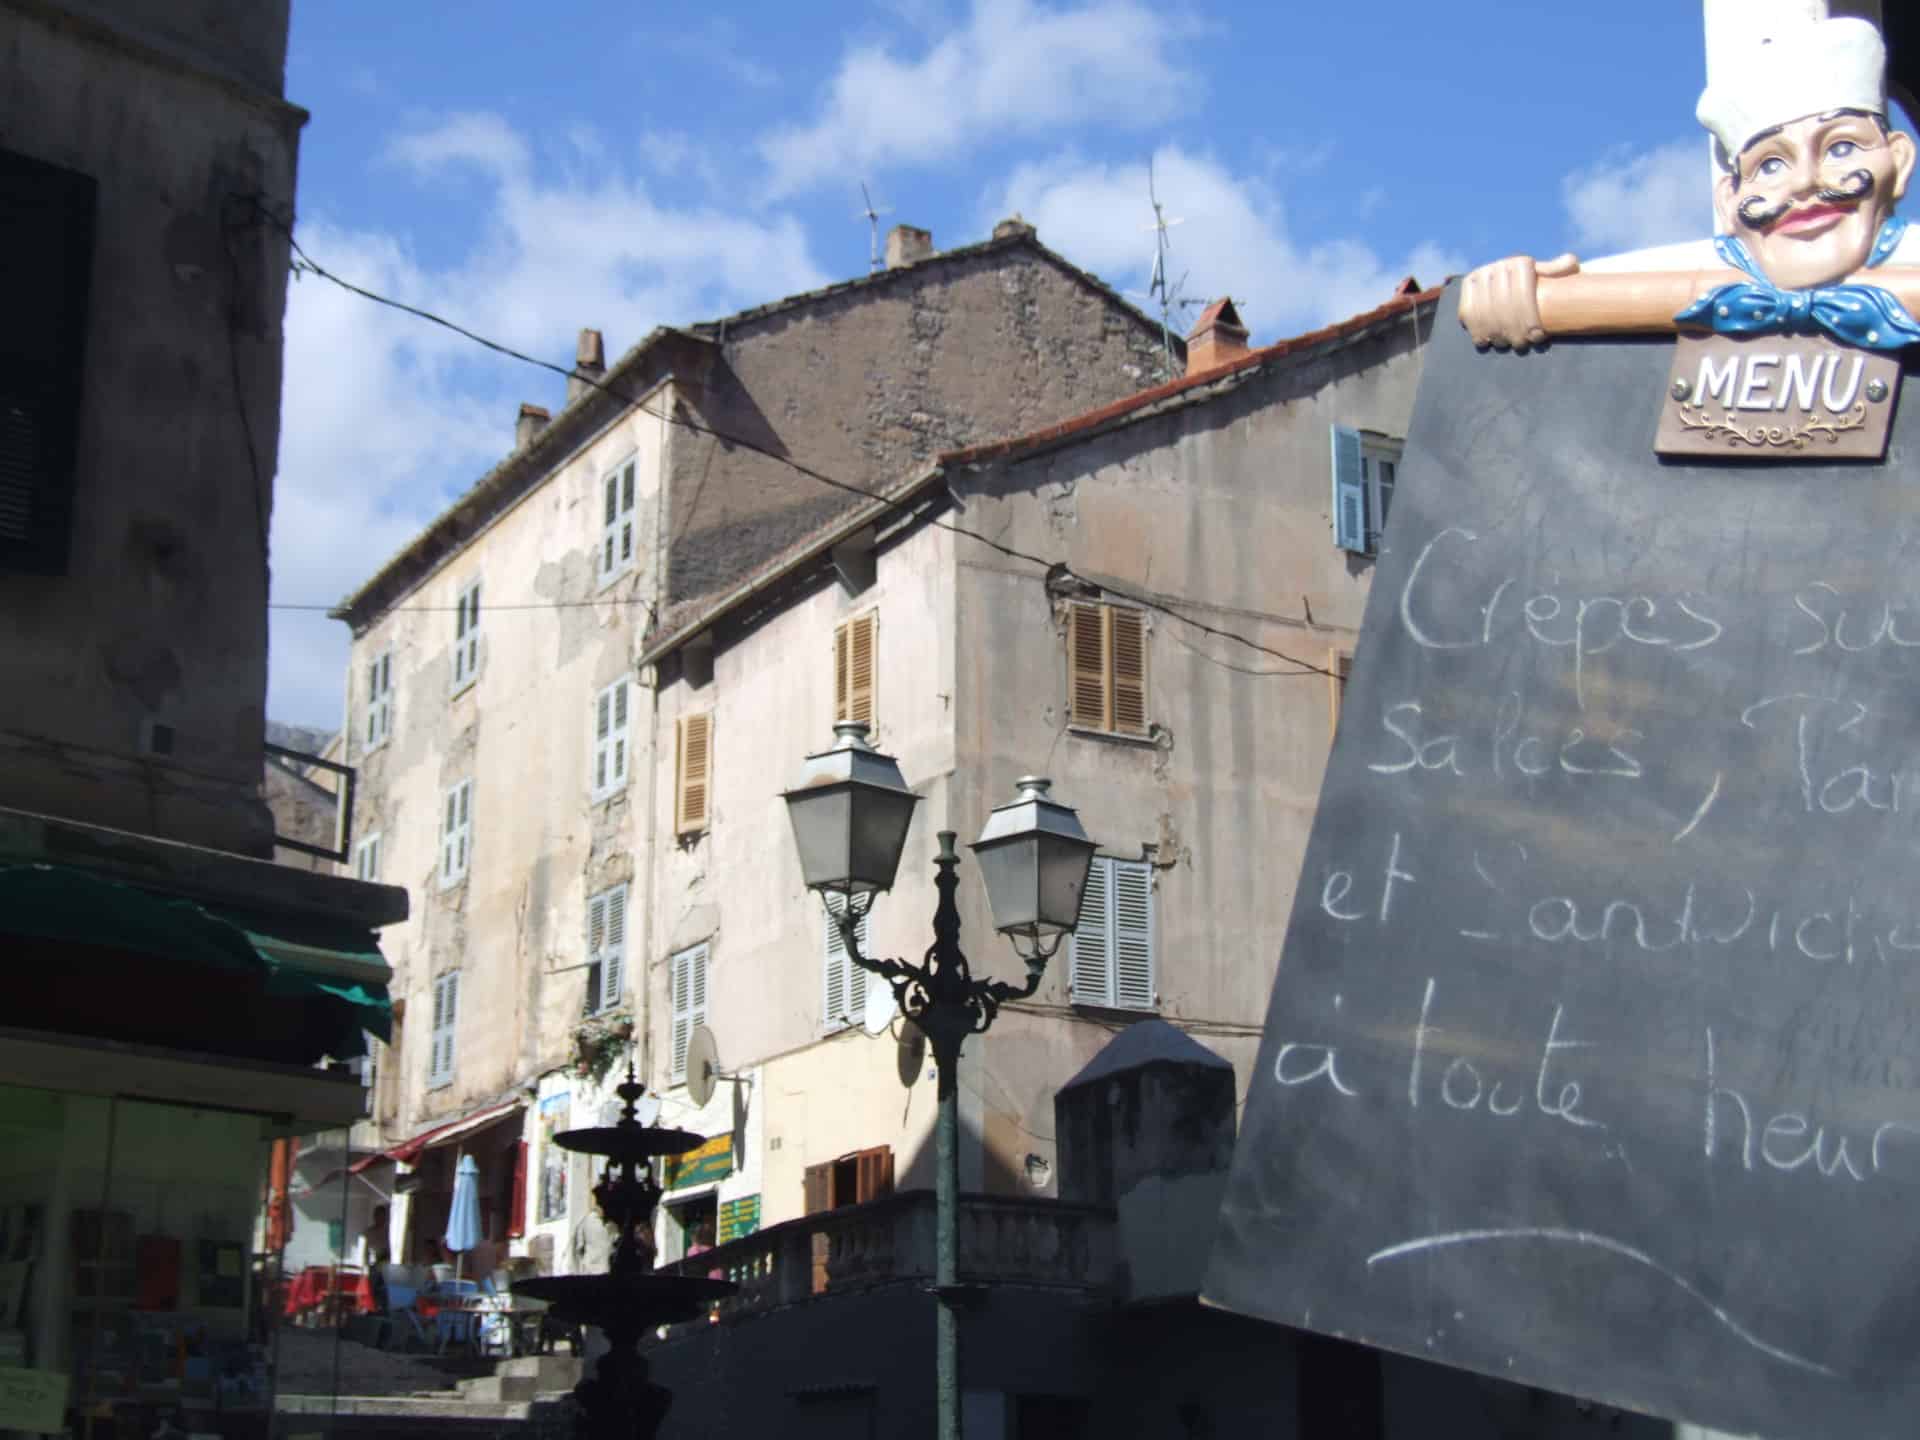 MENU
Crêpes suc
salées, Pan
et Sandwich
à toute heur